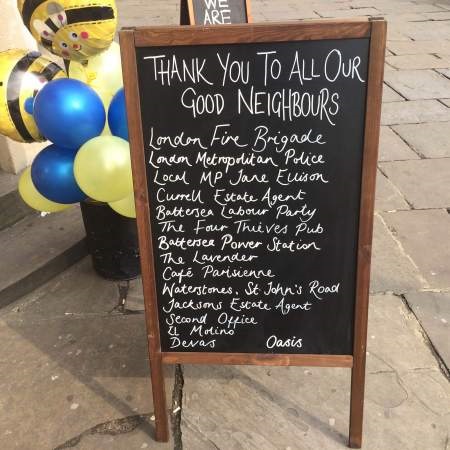 WE
ARE
THANK YOU TO ALL OUR
GOOD NEIGHBOURS
London Fire Brigade
London Metropolitan Police
Local MP Jane Ellison
Currell Estate Agent
Battersea Labour Party
The Four Thieves Pub
Battersea Power Station
The Lavender
Café Parisienne
Waterstones, St John's Road
Jacksons Estate Agent
Second Office
Il Molino
Devas Oasis